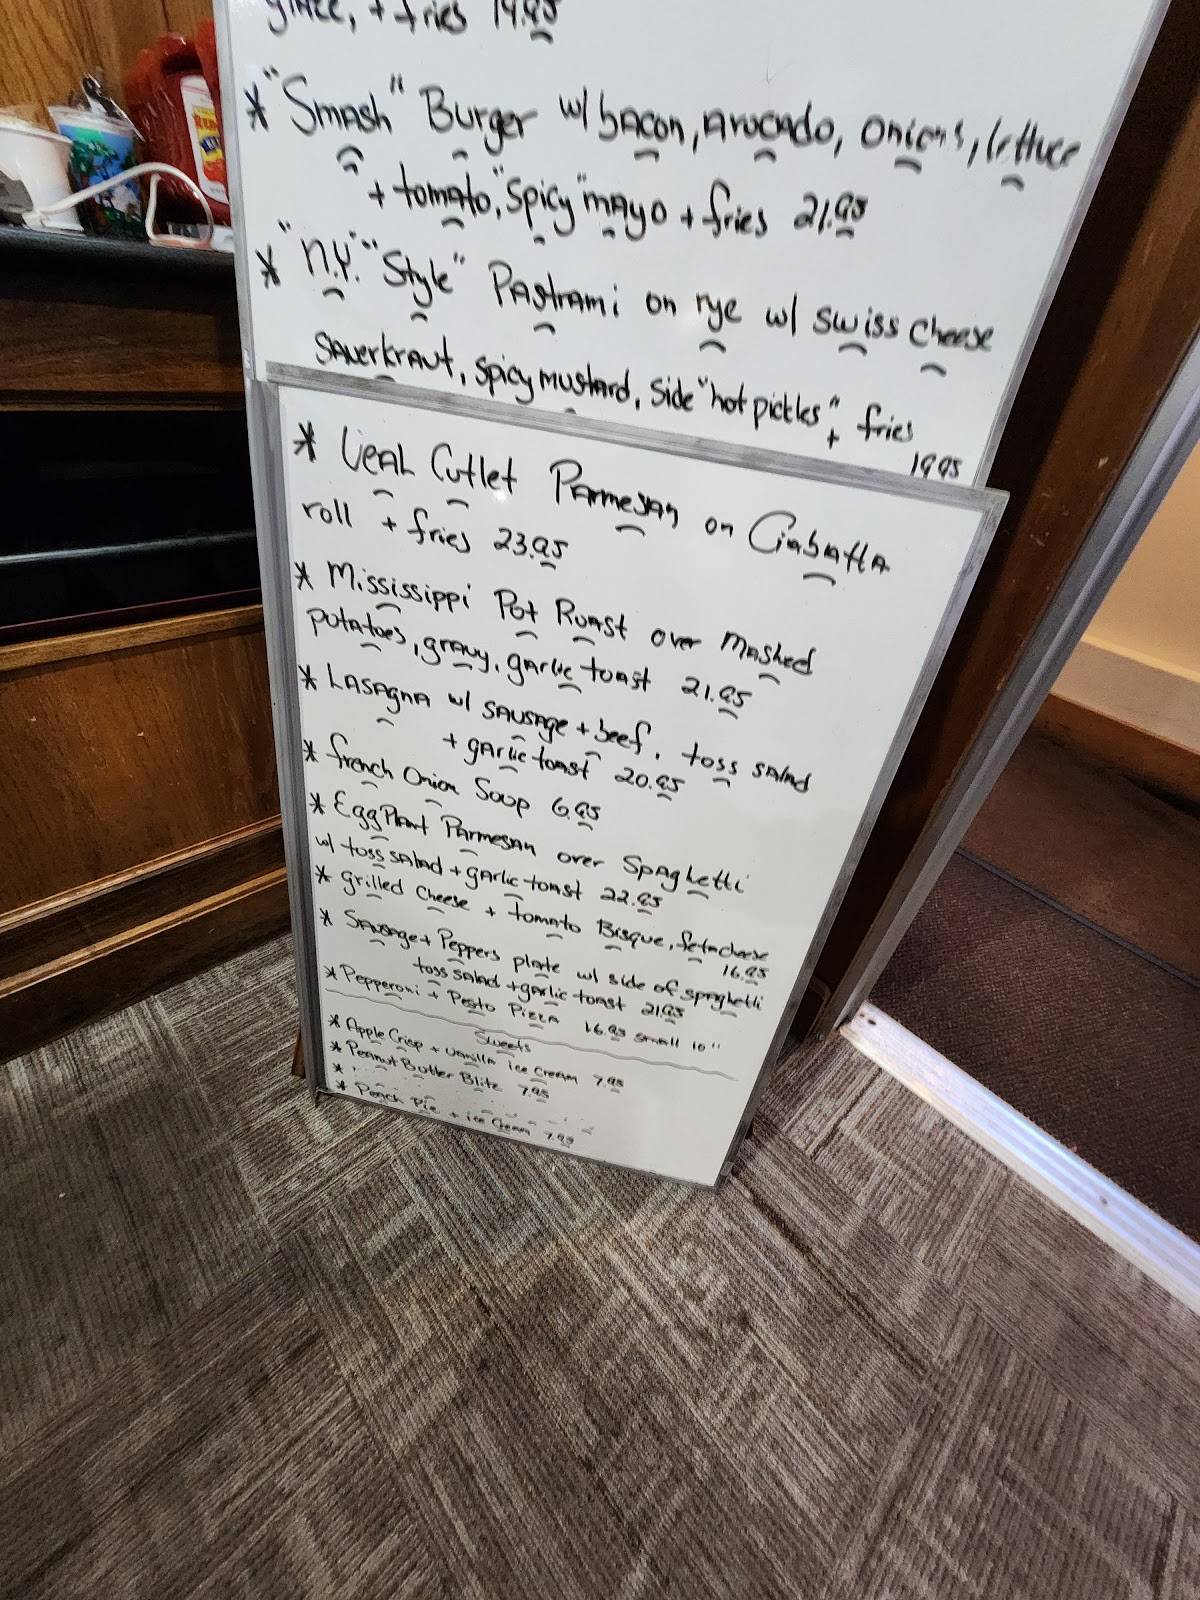 glaze, + fries 19.95
* "Smash" Burger w/ bacon, avocado, onions, lettuce
+ tomato, "spicy" mayo + fries 21.95
* "N.Y." "Style" Pastrami on rye w/ swiss cheese
sauerkraut, spicy mustard, side "hot pickles", + fries
19.95
* Veal Cutlet Parmesan on Ciabatta
roll + fries 23.95
* Mississippi Pot Roast over Mashed
potatoes, gravy, garlic toast 21.95
* Lasagna w/ sausage + beef, toss salad
+ garlic toast 20.95
* french Onion Soup 6.95
* EggPlant Parmesan over Spaghetti
w/ toss salad + garlic toast 22.95
* grilled Cheese + tomato Bisque, feta cheese
16.95
* Sausage + Peppers plate w/ side of spaghetti
toss salad + garlic toast 21.95
* Pepperoni + Pesto Pizza 16.95 small 10"
Sweets
* Apple Crisp + vanilla ice cream 7.95
* Peanut Butter Blitz 7.95
*
* Peach Pie + ice cream 7.95